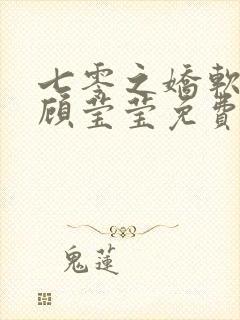 七零之嬌軟
顧瑩瑩免費
鬼蓮